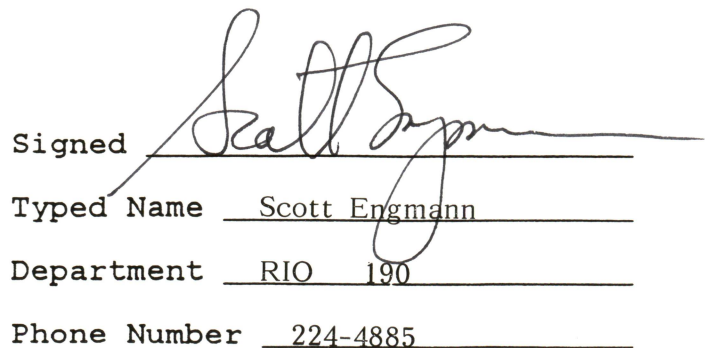 Signed Scott Engmann
Typed Name Scott Engmann
Department RIO 190
Phone Number 224-4885